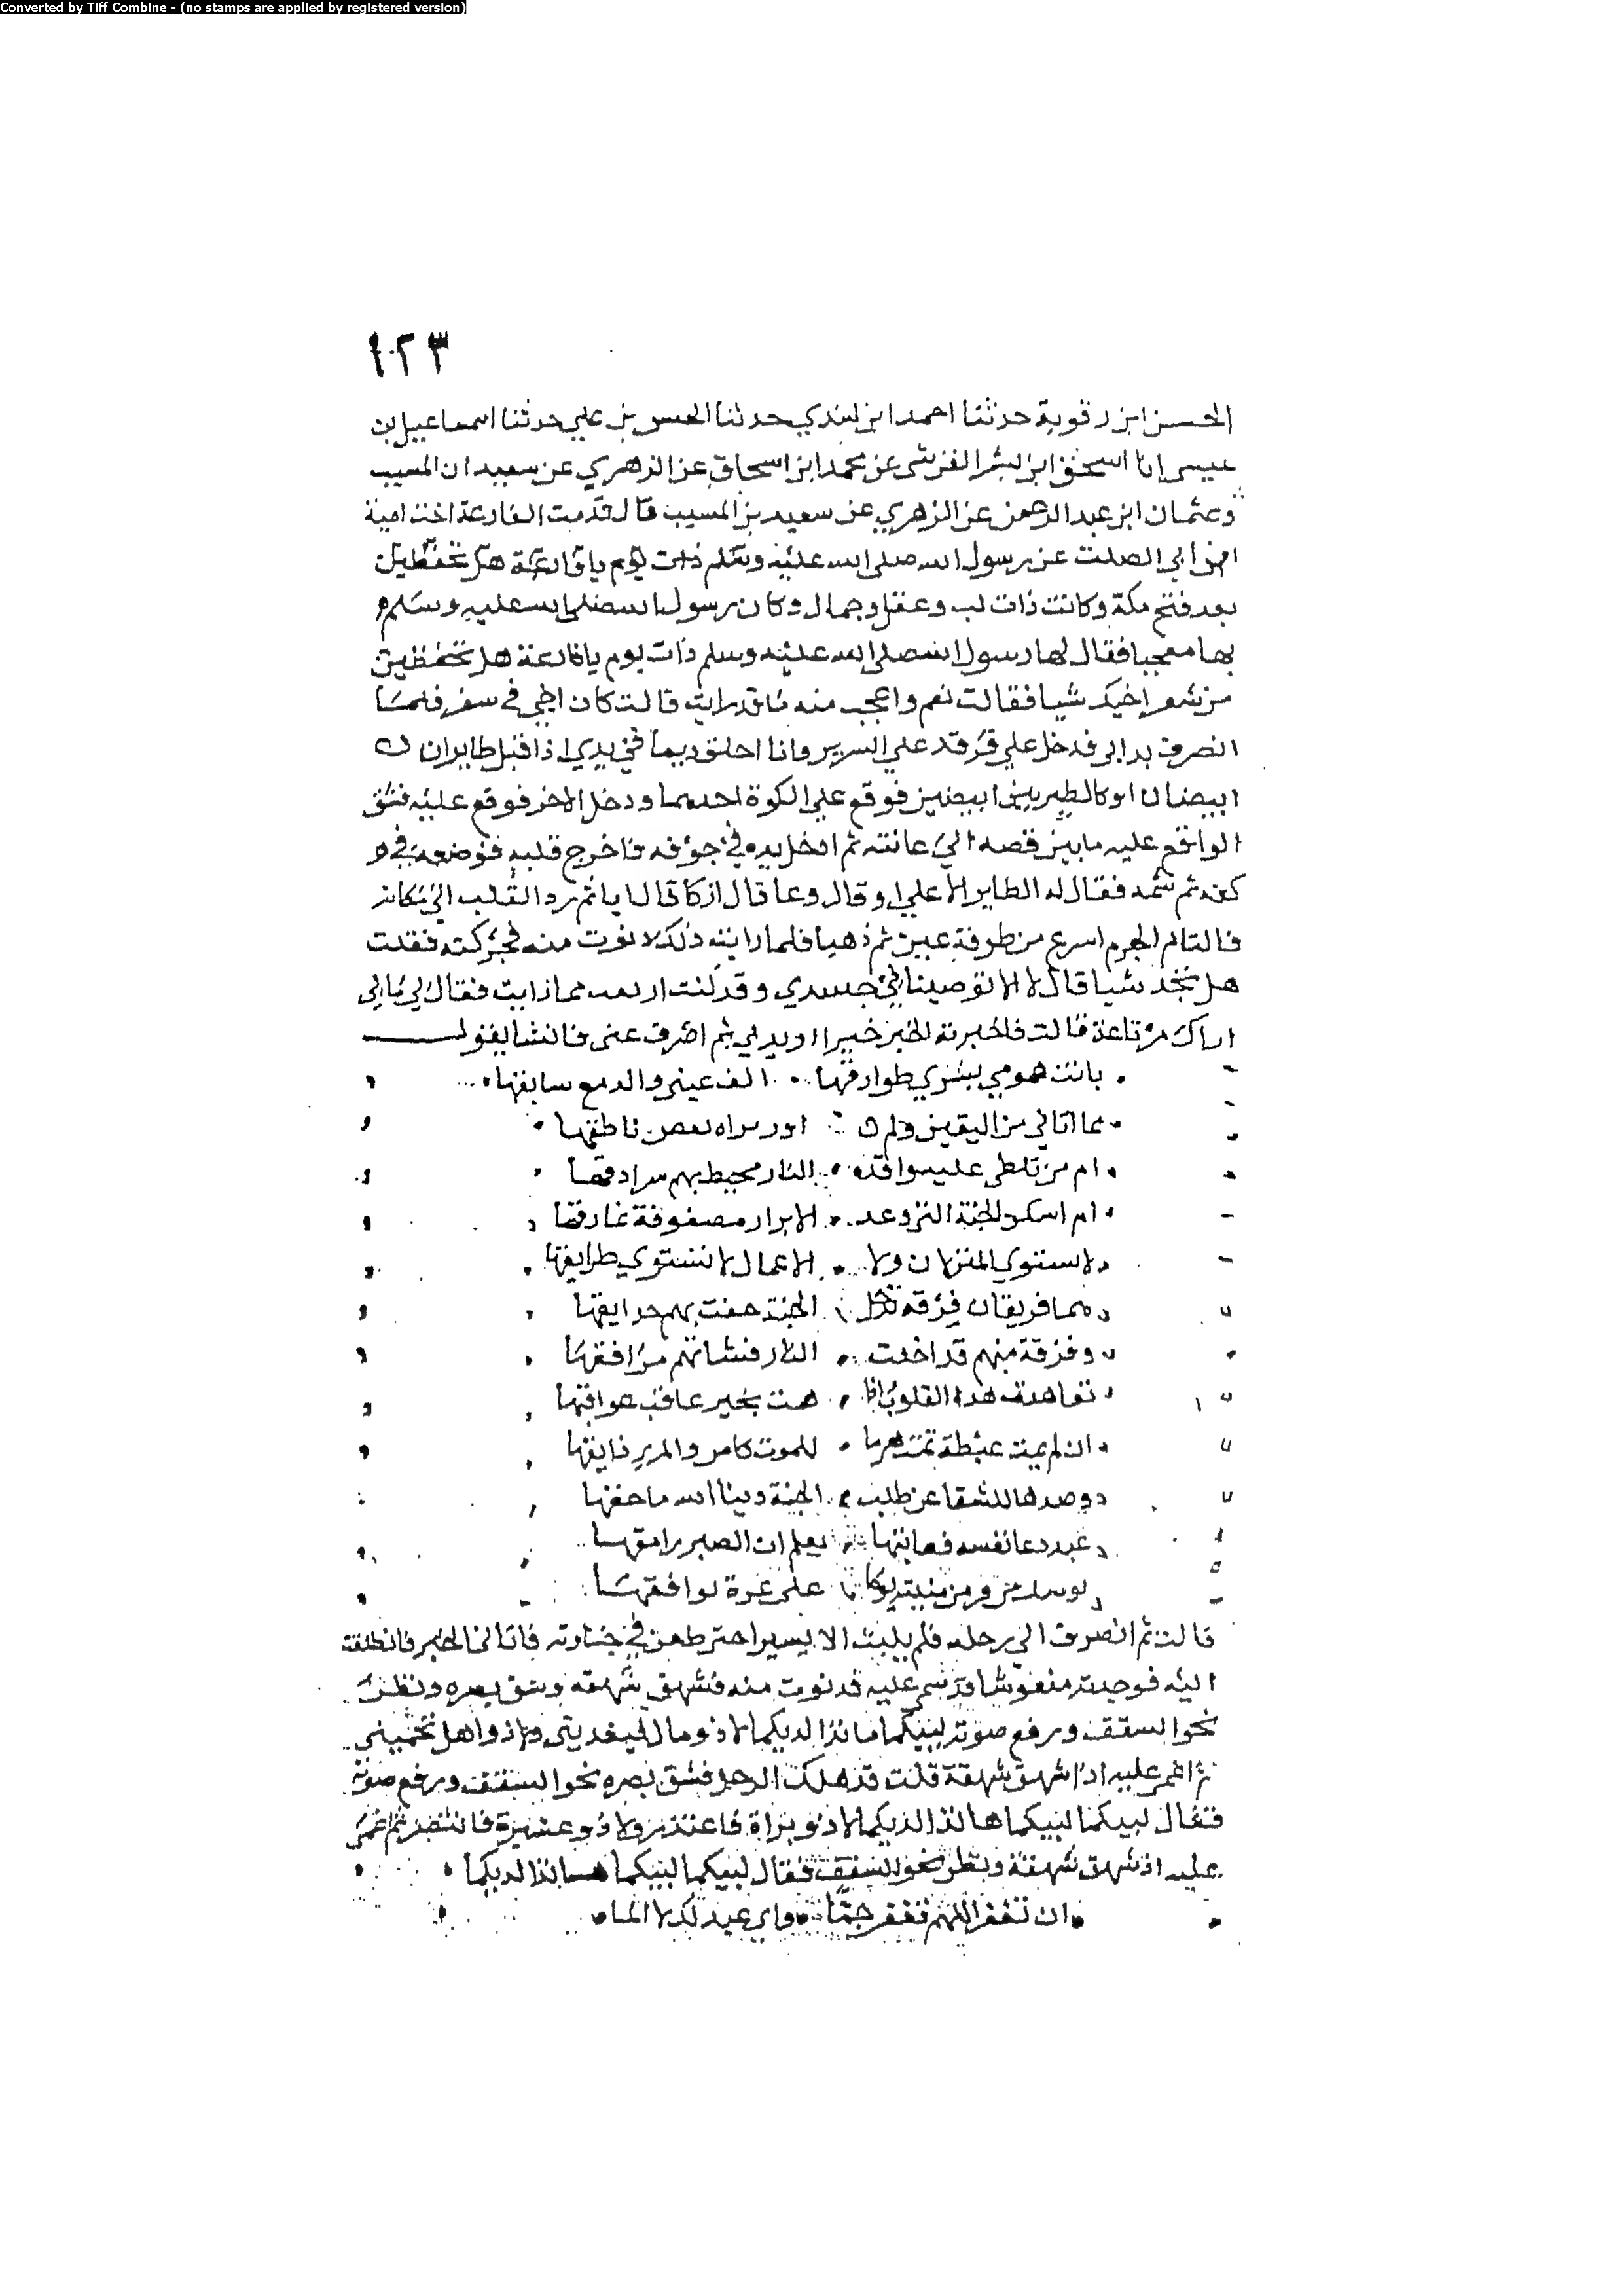 Converted by Tiff Combine - (no stamps are applied by registered version)
١٢٣
الحسن ابن رزقوية حدثنا احمد ابن السندي حدثنا الحسن بن علي حدثنا اسماعيل بن
عيسى انا اسحق ابن البشر القرشي عن محمد ابن اسحاق عن الزهري عن سعيد ان المسيب
وعثمان ابن عبد الرحمن عن الزهري عن سعيد بن المسيب قال قدمت الفارعة اخت امية
ابن ابي الصلت عن رسول الله صلى الله عليه وسلم ذات يوم يا فارعة هل تحفظين
بعد فتح مكة وكانت ذات لب وعقل وجمال وكان رسول الله صلى الله عليه وسلم
بها معجبا فقال لها رسول الله صلى الله عليه وسلم ذات يوم يا فارعة هل تحفظين
من شعر اخيك شيا فقالت نعم واعجب منه ما قد رايت قالت كان اخي في سفر فلما
انصرف بدا بي فدخل علي فرقد علي السرير وانا احلق ديما في يدي اذا قبل طايران
ابيضان او كالطيرين ابيضين فوقع علي الكوة احدهما ودخل الاخر فوقع عليه فشق
الواقع عليه ما بين قصه الي عانته ثم ادخل يده في جوفه فاخرج قلبه فوضعه في
كفه ثم شمه فقال له الطاير الاعلي اوعا قال وعا قال ازكا قال ابا ثم رد القلب الي مكانه
فالتام الجرح اسرع من طرفة عين ثم ذهبا فلما رايت ذلك دنوت منه فحركته فقلت
هل تجد شيا قال لا الا توصينا في جسدي وقد كنت ارتعبت مما رايت فقال لي مالي
اراك مرتاعة قالت فاخبرته الخبر خيرا اريد لي ثم انصرف عني فانشا يقول
باتت همومي تسري طوارقها الف عيني والدمع سابقها
مما اتاني من اليقين ولم اوت براه بعض ناطقها
ام من تلظى عليه واقدة النار محيط بهم سرادقها
ام اسكن الجنة التي وعد الابرار مصفوفة نمارقها
لا يستوي المنزلان ولا الاعمال لا تستوي طرايقها
هما فريقان فرقة تدخل الجنة حفت بهم حدايقها
وفرقة منهم قد ادخلت النار فشانهم مرافقها
تعاهدت هذه القلوب اذا همت بخير عاقت عوايقها
ان لم يمت عبطة يمت هرما للموت كاس والمرء ذايقها
وصدها للشقا عن طلب الجنة دنيا الله ماحقها
عبد دعا نفسه فعاتبها يعلم ان الصبر رامقها
يوشك من فر من منيته يوما على غرة يوافقها
قالت ثم انصرف الي رحله فلم يلبث الا يسيرا حتى طعن في جنازته فاتاني الخبر فانطلقت
اليه فوجدته منعوشا قد سجي عليه فدنوت منه فشهق شهقة وشق بصره ونظر
نحو السقف ورفع صوته لبيكما ها انذا لديكما لا ذو مال فيفديني ولا ذو اهل تحميني
ثم اغمي عليه اذ شهق شهقة قلت قد هلك الرجل فشق بصره نحو السقف ورفع صوته
فقال لبيكما لبيكما ها انذا لديكما لا ذو براة فاعتذر ولا ذو عشيرة فانتصر ثم اغمي
عليه اذ شهق شهقة ونظر نحو السقف فقال لبيكما لبيكما ها انذا لديكما
ان تغفر اللهم تغفر جما واي عبد لك لا الما